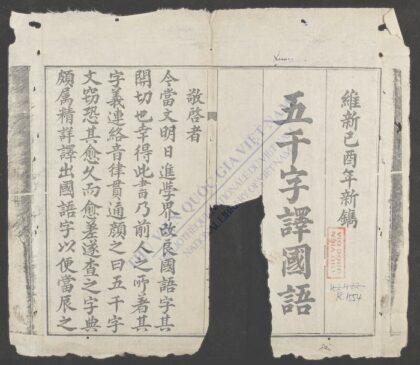 維新己酉年新鐫
五千字譯國語
R.1554
敬啓者
今當文明日進學界改良國語字其
開切也幸得此書乃前人之所著其
字義連絡音律貫通顏之曰五千字
文窃恐其愈久而愈差遂查之字典
頗属精詳譯出國語字以便當辰之
QUỐC GIA VIỆT NAM
NATIONALE DU VIETNAM
NATIONAL LIBRARY OF VIETNAM